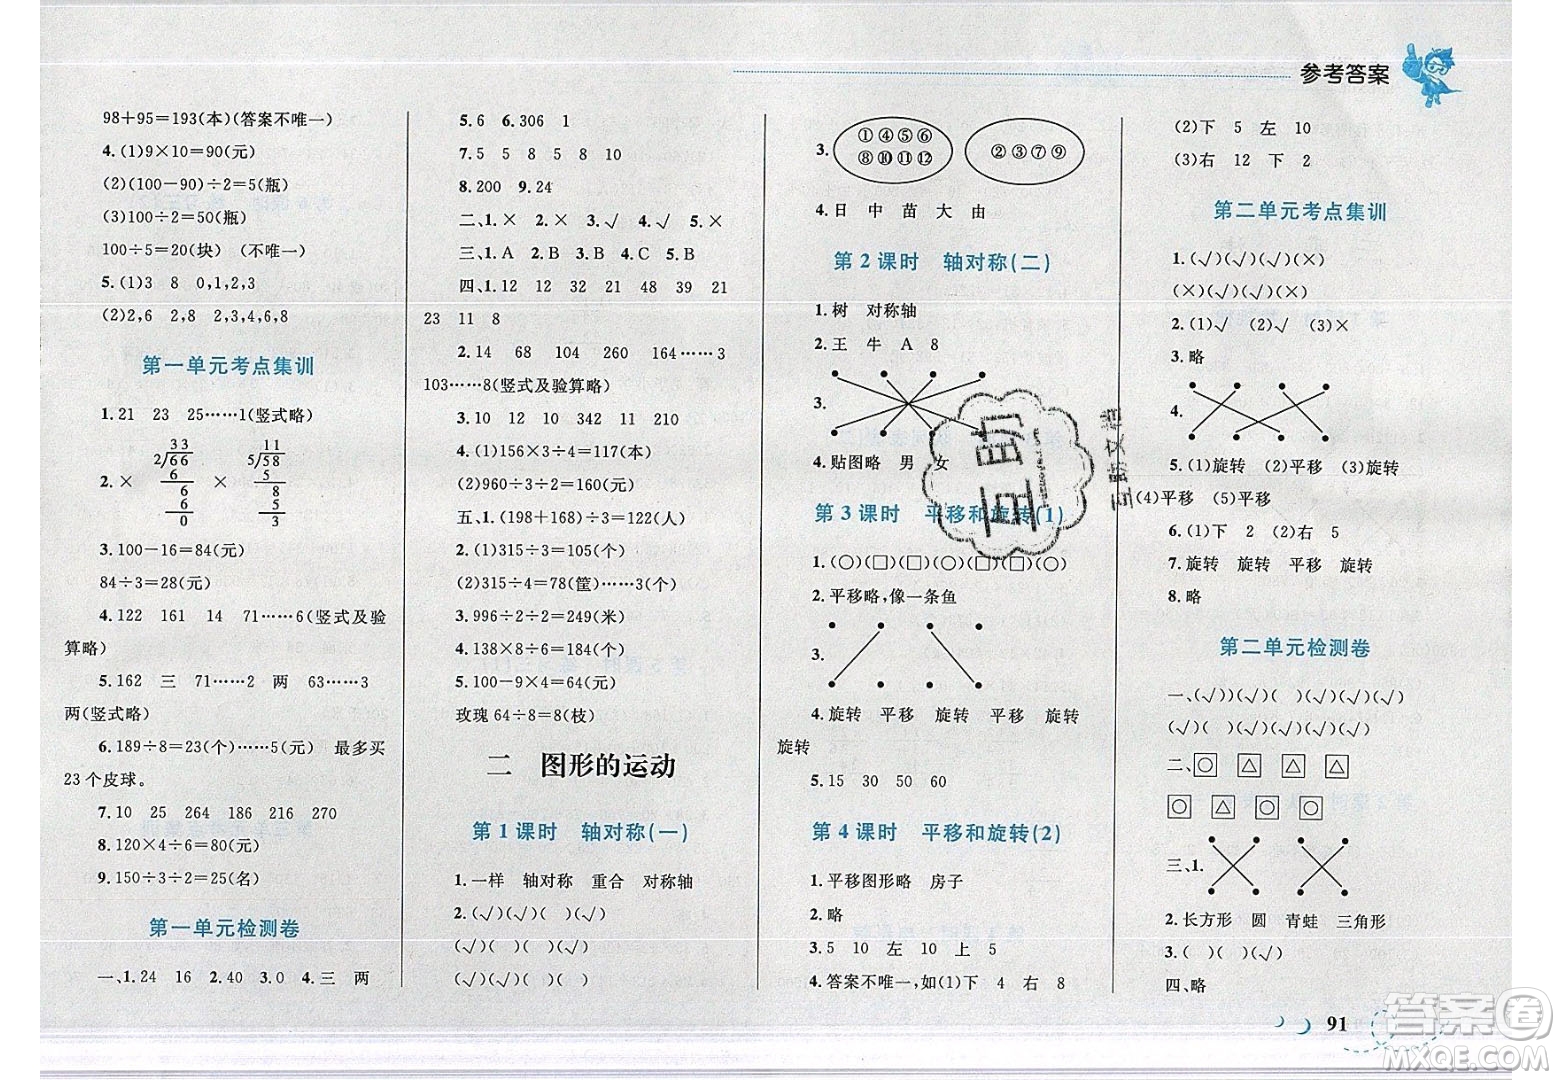 参考答案
98+95=193(本)(答案不唯一)
4.(1)9×10=90(元)
(2)(100-90)÷2=5(瓶)
(3)100÷2=50(瓶)
100÷5=20(块) (不唯一)
5.(1)3 8 0,1,2,3
(2)2,6 2,8 2,3,4,6,8
第一单元考点集训
1.21 23 25……1(竖式略)
33 11
2)66 5)58
2.× 6 × 5
6 8
6 5
0 3
3.100-16=84(元)
84÷3=28(元)
4.122 161 14 71……6(竖式及验
算略)
5.162 三 71……2 两 63……3
两(竖式略)
6.189÷8=23(个)……5(元) 最多买
23个皮球。
7.10 25 264 186 216 270
8.120×4÷6=80(元)
9.150÷3÷2=25(名)
第一单元检测卷
一、1.24 16 2.40 3.0 4.三 两
5.6 6.306 1
7.5 5 8 5 8 10
8.200 9.24
二、1.× 2.× 3.√ 4.√ 5.×
三、1.A 2.B 3.B 4.C 5.B
四、1.12 12 31 48 39 21
23 11 8
2.14 68 104 260 164……3
103……8(竖式及验算略)
3.10 12 10 342 11 210
4.(1)156×3÷4=117(本)
(2)960÷3÷4=80(元)
五、1.(198+168)÷3=122(人)
2.(1)315÷3=105(个)
(2)315÷4=78(筐)……3(个)
3.996÷2÷2=249(米)
4.138×8÷6=184(个)
5.100-9×4=64(元)
玫瑰 64÷8=8(枝)
二 图形的运动
第1课时 轴对称(一)
1.一样 轴对称 重合 对称轴
2.(√)(√)( )(√)
(√)( )( )(√)
(√)(√)(√)( )
①④⑤⑥
3. ⑧⑩⑪⑫ ②③⑦⑨
4.日 中 苗 大 由
第2课时 轴对称(二)
1.树 对称轴
2.王 牛 A 8
3.
4.贴图略 男 女
第3课时 平移和旋转(1)
1.(○)(□)(□)(○)(□)(□)(○)
2.平移略,像一条鱼
3.
4.旋转 平移 旋转 平移 旋转
旋转
5.15 30 50 60
第4课时 平移和旋转(2)
1.平移图形略 房子
2.略
3.5 10 左 10 上 5
4.答案不唯一,如(1)下 4 右 8
(2)下 5 左 10
(3)右 12 下 2
第二单元考点集训
1.(√)(√)(×)(√)
(×)(√)(√)(×)
2.(1)√ (2)√ (3)×
3.略
4.
5.(1)旋转 (2)平移 (3)旋转
(4)平移 (5)平移
6.(1)下 2 (2)右 5
7.旋转 旋转 平移 旋转
8.略
第二单元检测卷
一、(√)(√)( )(√)(√)
(√)(√)(√)( )(√)
二、
三、1.
2.长方形 圆 青蛙 三角形
3.( )(√)( )( )
四、略
互助
互助文档
91
答案圈
MXQE.COM